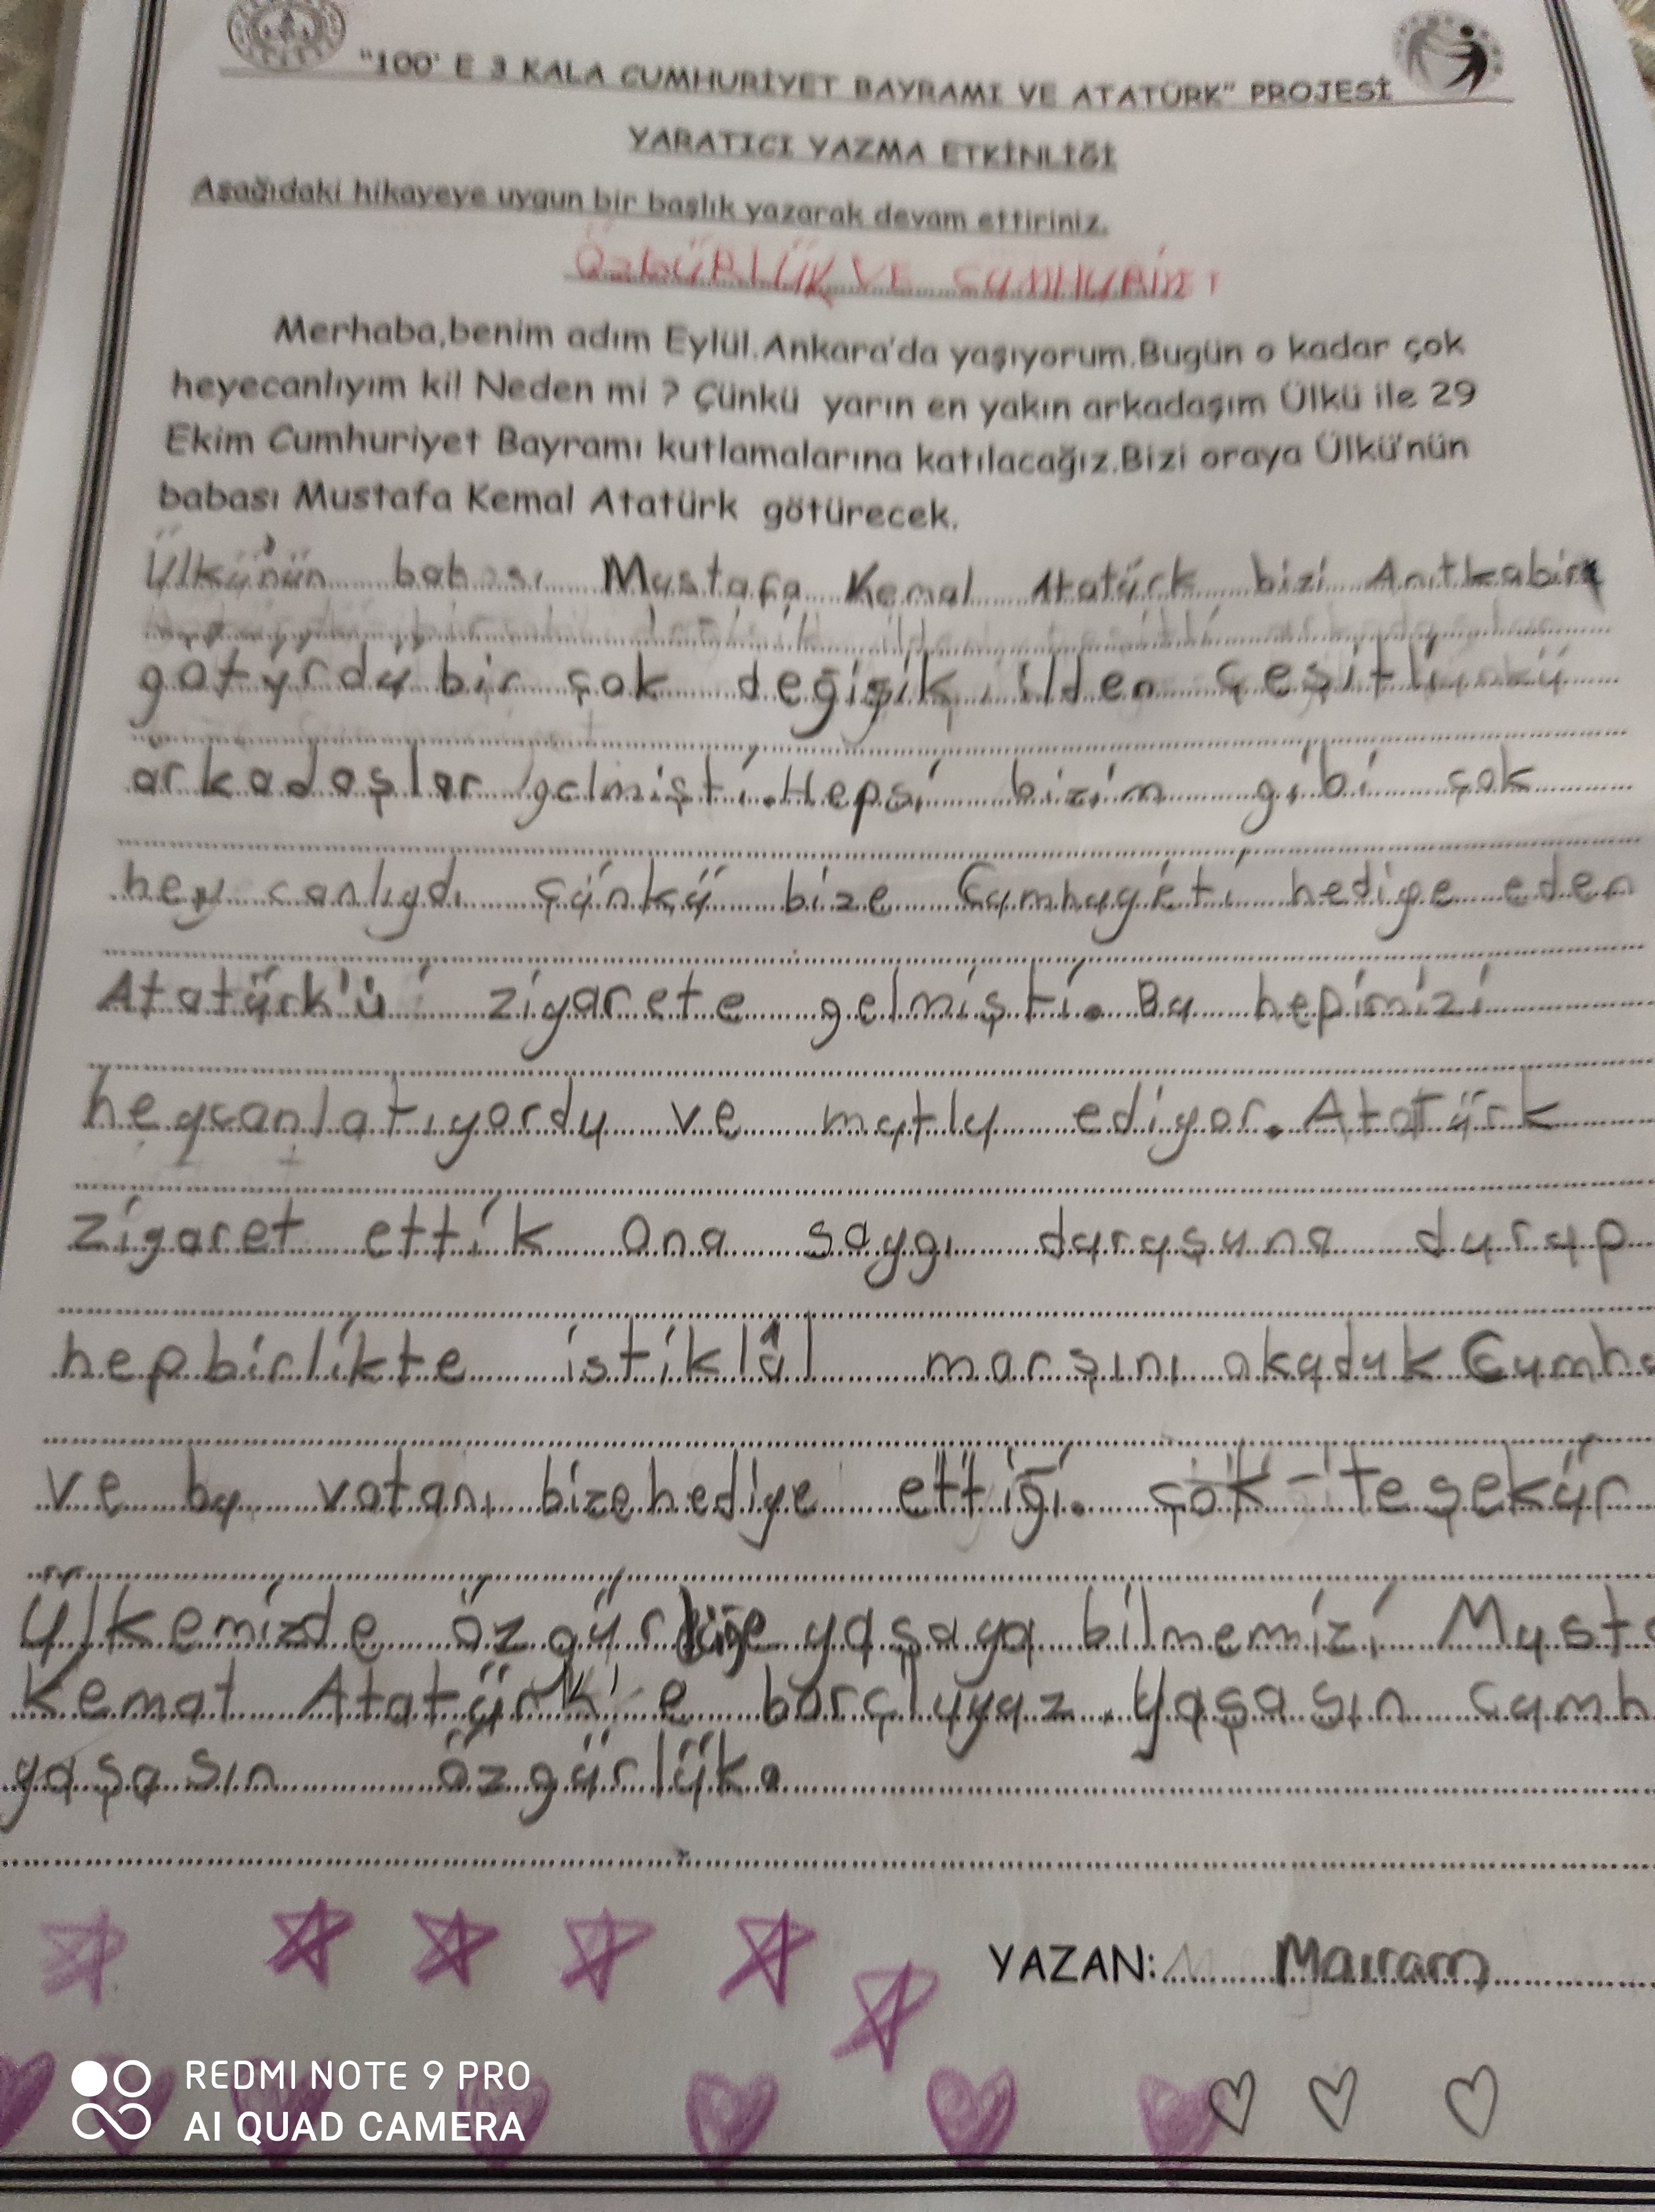 "100' E 3 KALA CUMHURİYET BAYRAMI VE ATATÜRK" PROJESİ
YARATICI YAZMA ETKİNLİĞİ
Aşağıdaki hikayeye uygun bir başlık yazarak devam ettiriniz.
ÖzGÜRLÜK VE CUMHURİET
Merhaba,benim adım Eylül.Ankara'da yaşıyorum.Bugün o kadar çok
heyecanlıyım ki! Neden mi ? Çünkü yarın en yakın arkadaşım Ülkü ile 29
Ekim Cumhuriyet Bayramı kutlamalarına katılacağız.Bizi oraya Ülkü'nün
babası Mustafa Kemal Atatürk götürecek.
Ülkü'nün babası Mustafa Kemal Atatürk bizi Anıtkabir
götürdü bir çok değişik ilden çeşitli
arkadaşlar gelmişti. Hepsi bizim gibi çok
heycanlıydı çünkü bize Cumhuyéti hediye eden
Atatürk'ü ziyarete gelmişti. Bu hepimizi
heycanlatıyordu ve mutlu ediyor. Atatürk
ziyaret ettik ona saygı duruşuna durup
hepbirlikte istiklâl marşını okuduk Cumhu
ve bu vatanı bize hediye ettiği. çok teşekür
Ülkemizde özgürlüğe yaşaya bilmemizi Musta
Kemat Atatürk'e borçluyuz. Yaşasın cumh
yaşasın özgürlük.
YAZAN: Maıram
REDMI NOTE 9 PRO
AI QUAD CAMERA